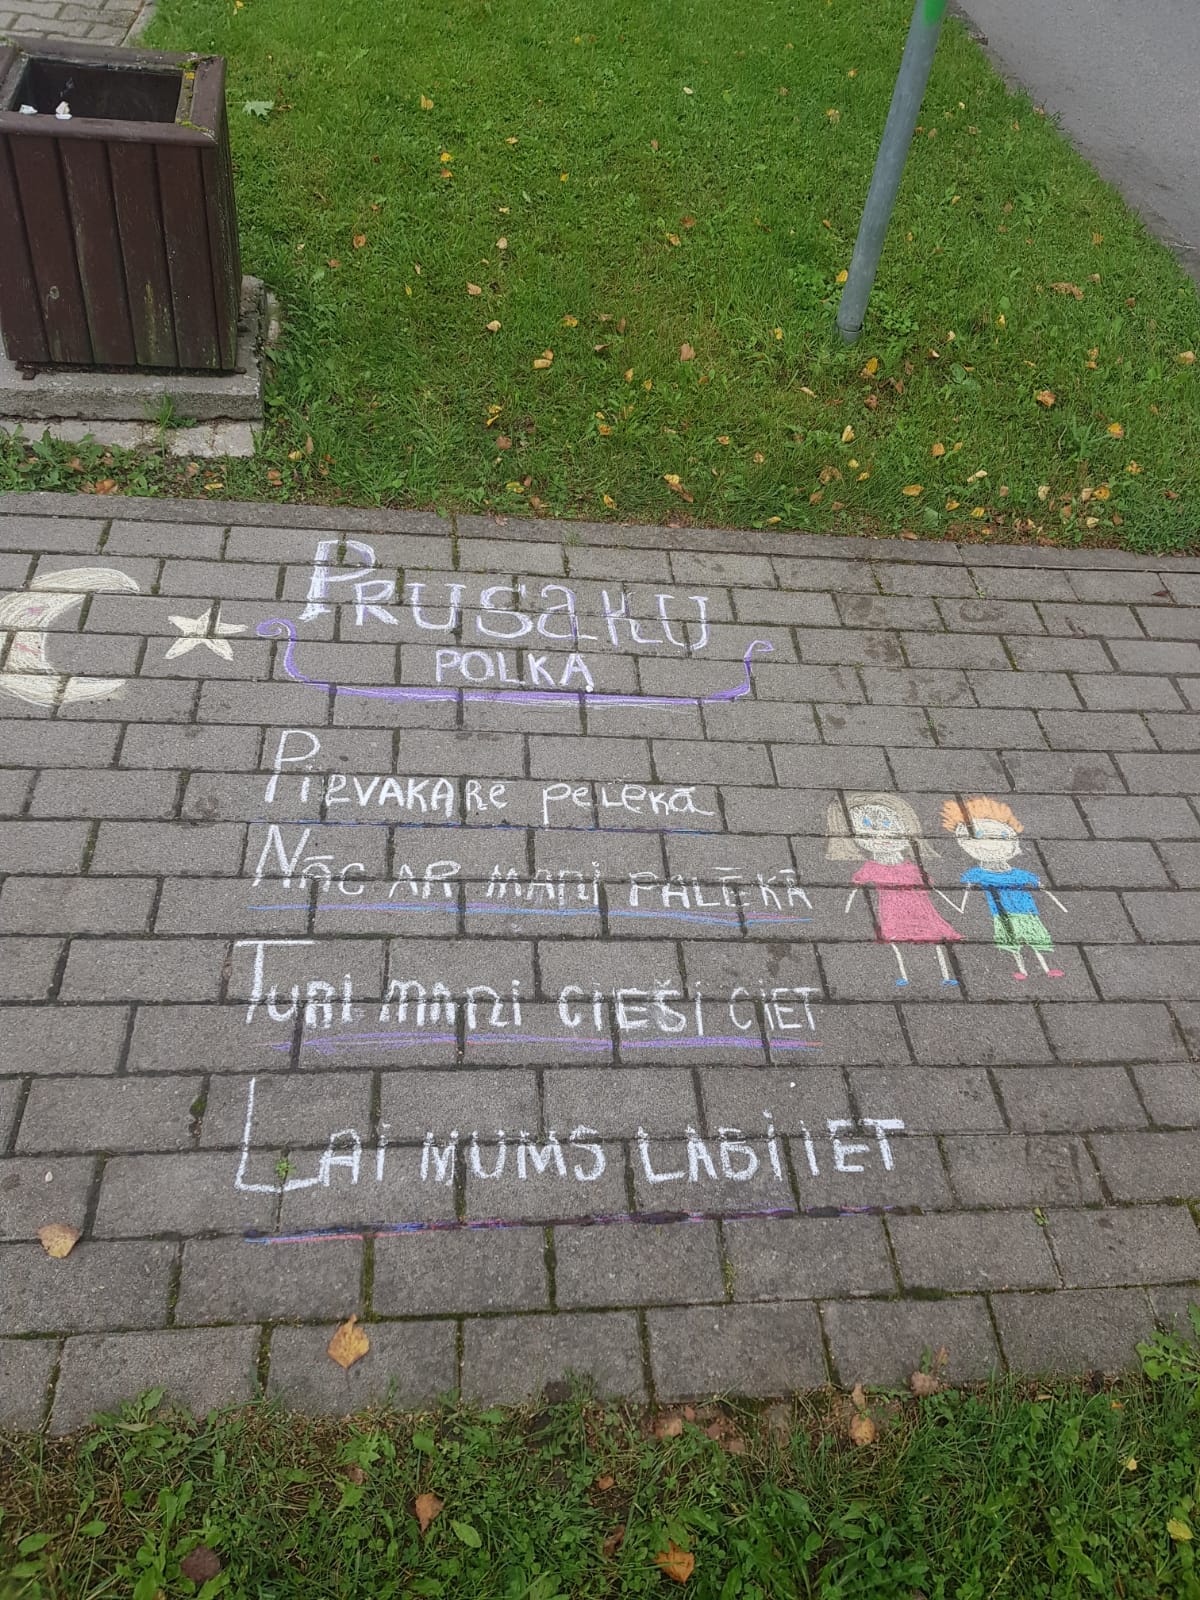 PRUSAKU
POLKA
PIEVAKARE PELĒKĀ
NĀC AR MANI PALĒKĀ
TURI MANI CIEŠI CIET
LAI MUMS LABI IET